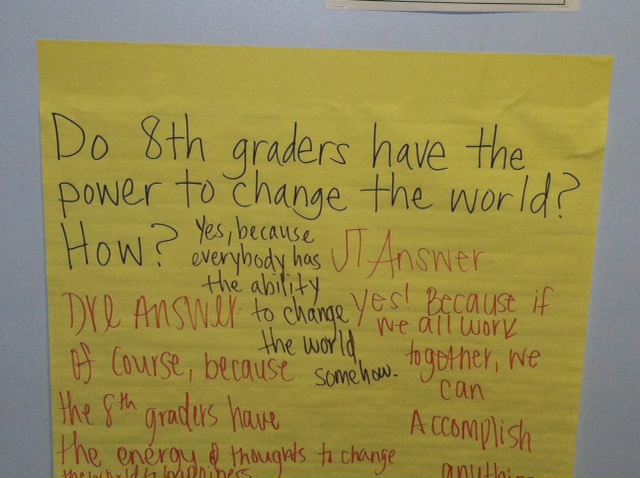 Do 8th graders have the
power to change the world?
How?
Yes, because
everybody has
the ability
to change
the world
somehow.
JT Answer
Yes! Because if
we all work
together, we
can
Accomplish
anything
Dre Answer
Of course, because
the 8th graders have
the energy & thoughts to change
the world to happiness